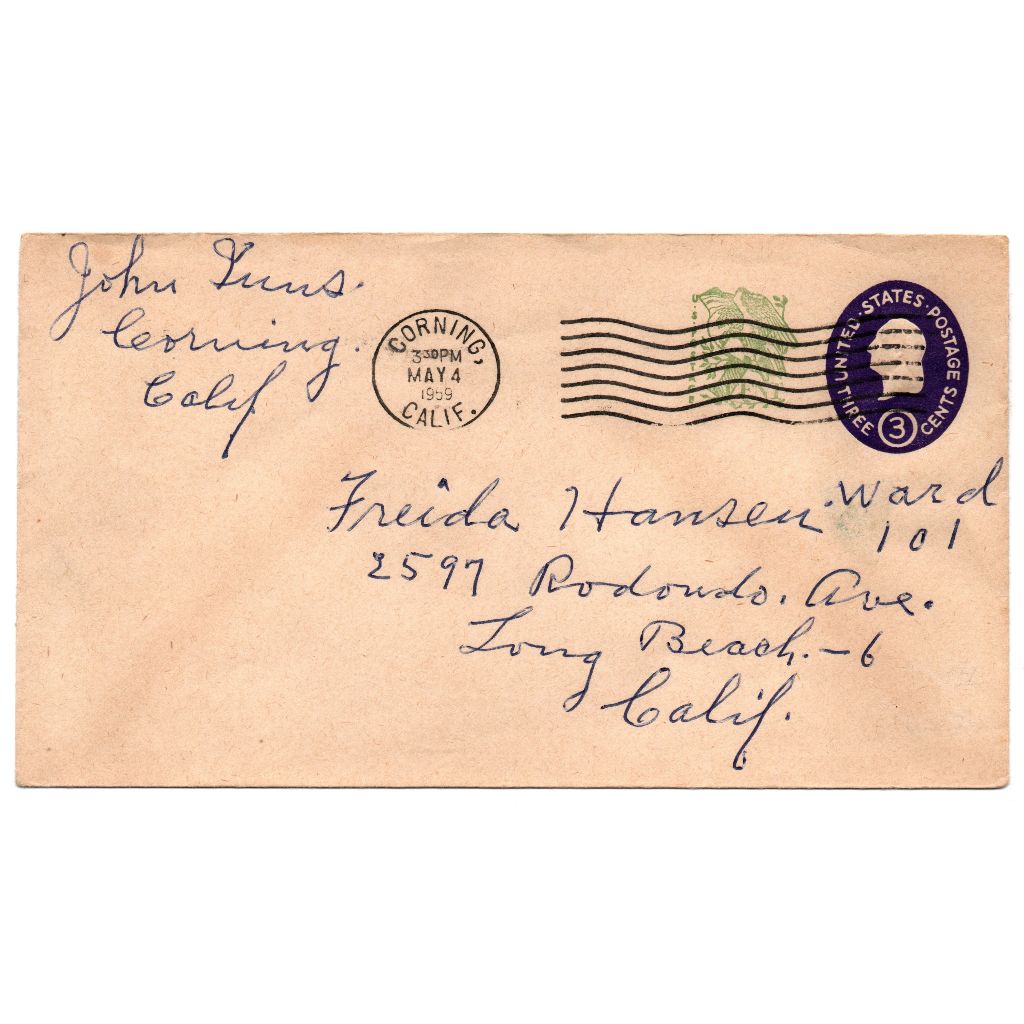 John
Corning.
Calif
CORNING,
3 30 PM
MAY 4
1959
CALIF.
UNITED · STATES · POSTAGE
THREE 3 CENTS
Freida Hansen Ward
101
2597 Rodondo. Ave.
Long Beach. - 6
Calif.